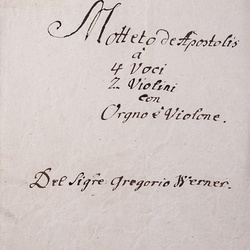 Motteto de Apostolis
a
4 Voci
2 Violini
con
Orgno è Violone.
Del Sigre Gregorio Werner.